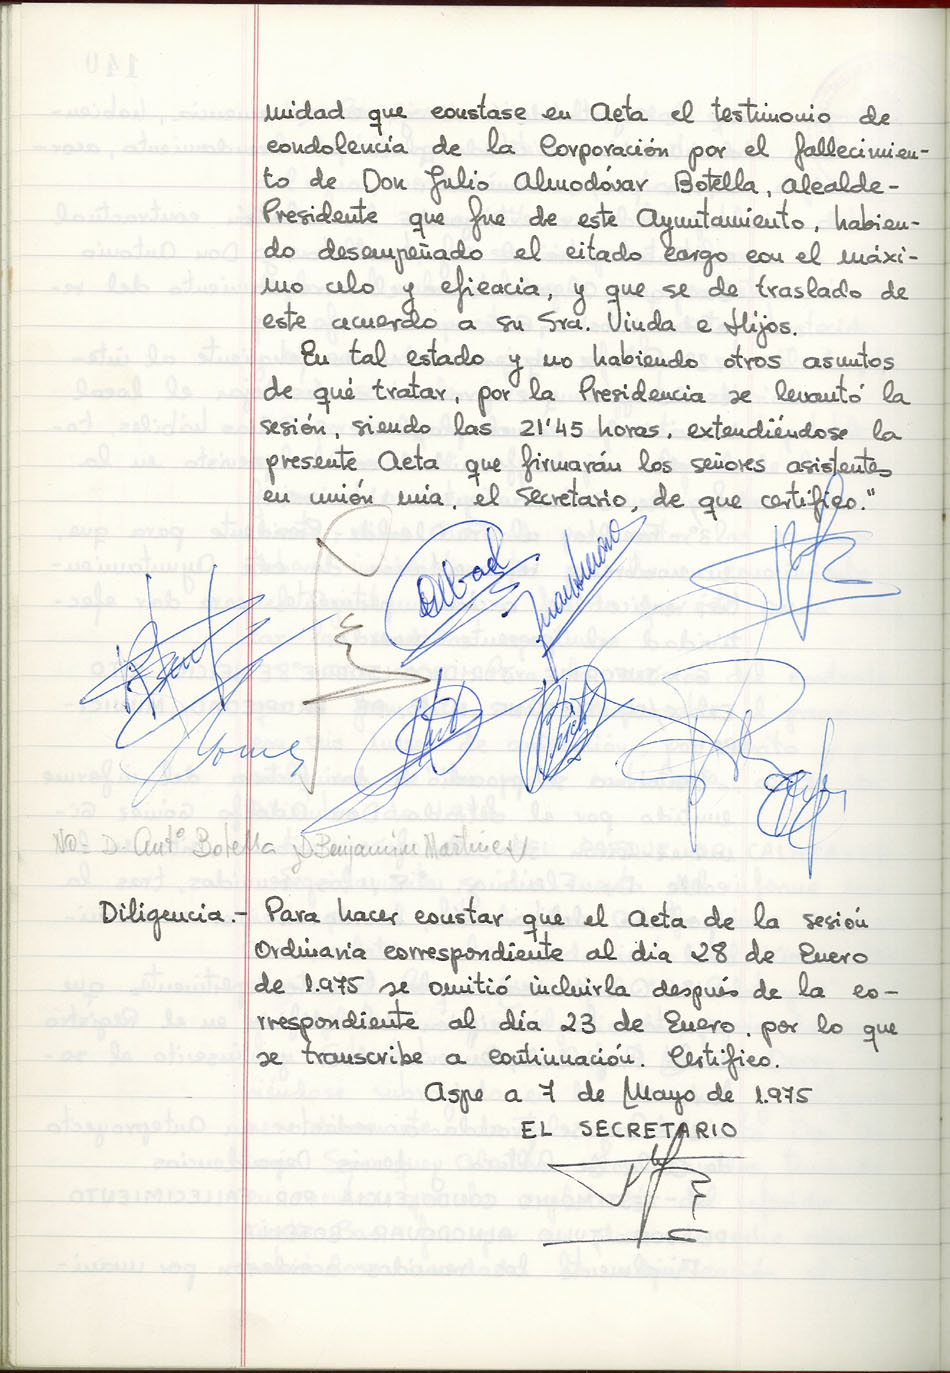 nidad que constase en Acta el testimonio de
condolencia de la Corporación por el fallecimien-
to de Don Julio Almodóvar Botella, alcalde-
Presidente que fue de este Ayuntamiento, habien-
do desempeñado el citado cargo con el máxi-
mo celo y eficacia, y que se de traslado de
este acuerdo a su Sra. Viuda e Hijos.
En tal estado y no habiendo otros asuntos
de qué tratar, por la Presidencia se levantó la
sesión, siendo las 21'45 horas, extendiéndose la
presente Acta que firmarán los señores asistentes
en unión mia, el Secretario, de que certifico."
D. Antº Botella y D. Benjamín Martinez
Diligencia.- Para hacer constar que el Acta de la sesión
Ordinaria correspondiente al dia 28 de Enero
de 1.975 se omitió incluirla después de la co-
rrespondiente al día 23 de Enero, por lo que
se transcribe a continuación. Certifico.
Aspe a 7 de Mayo de 1.975
EL SECRETARIO